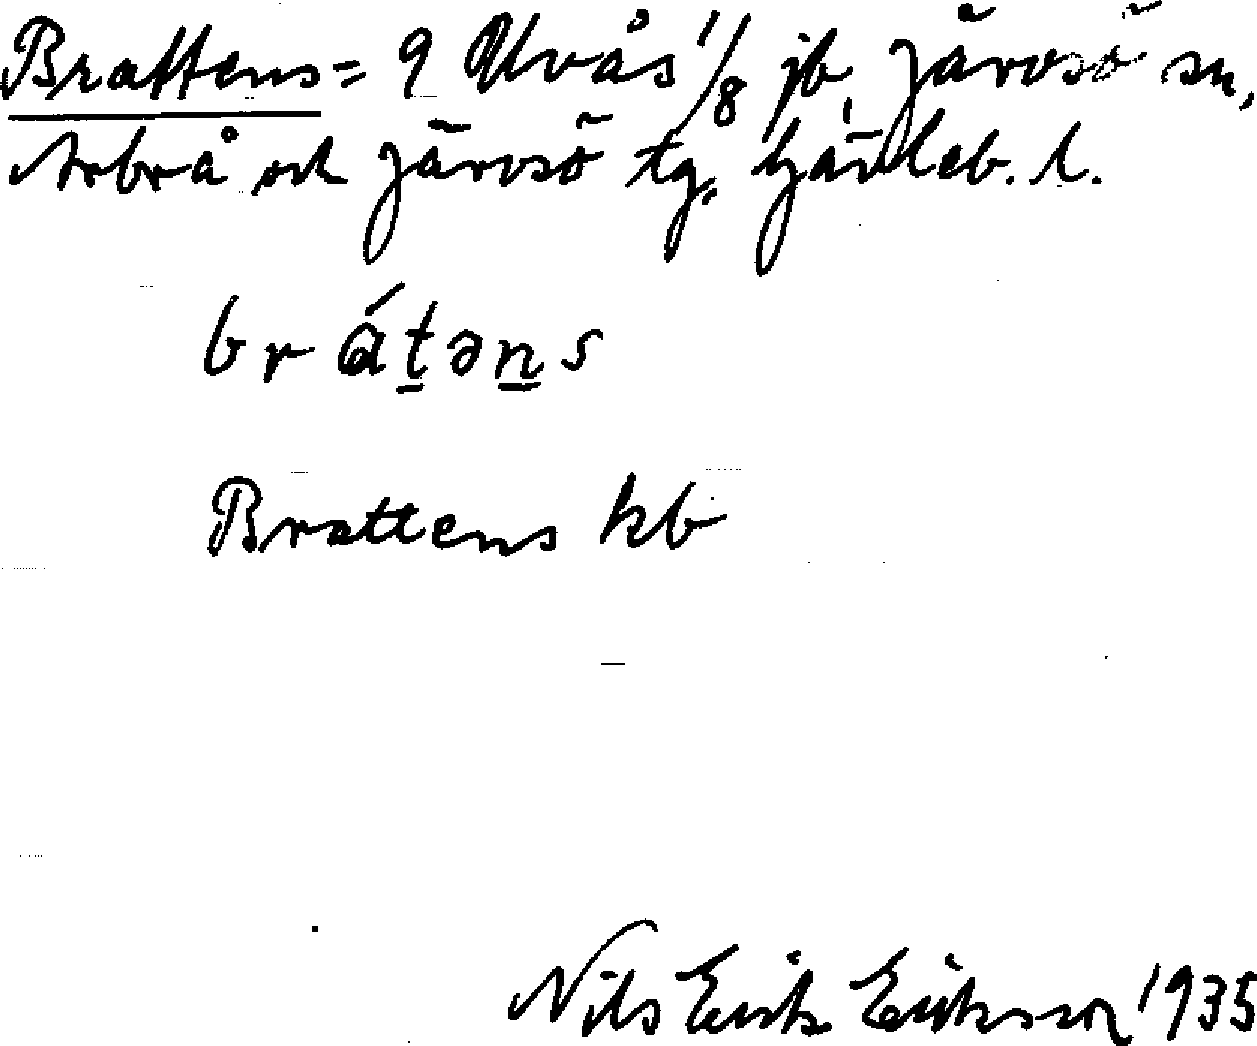 Brattens = 9 Ulvås 1/8 jb, Järvsö sn,
Arbrå och Järvsö tg. Gävleb. l.
brátəns
Brattens kb
Nils Erik Eriksson 1935